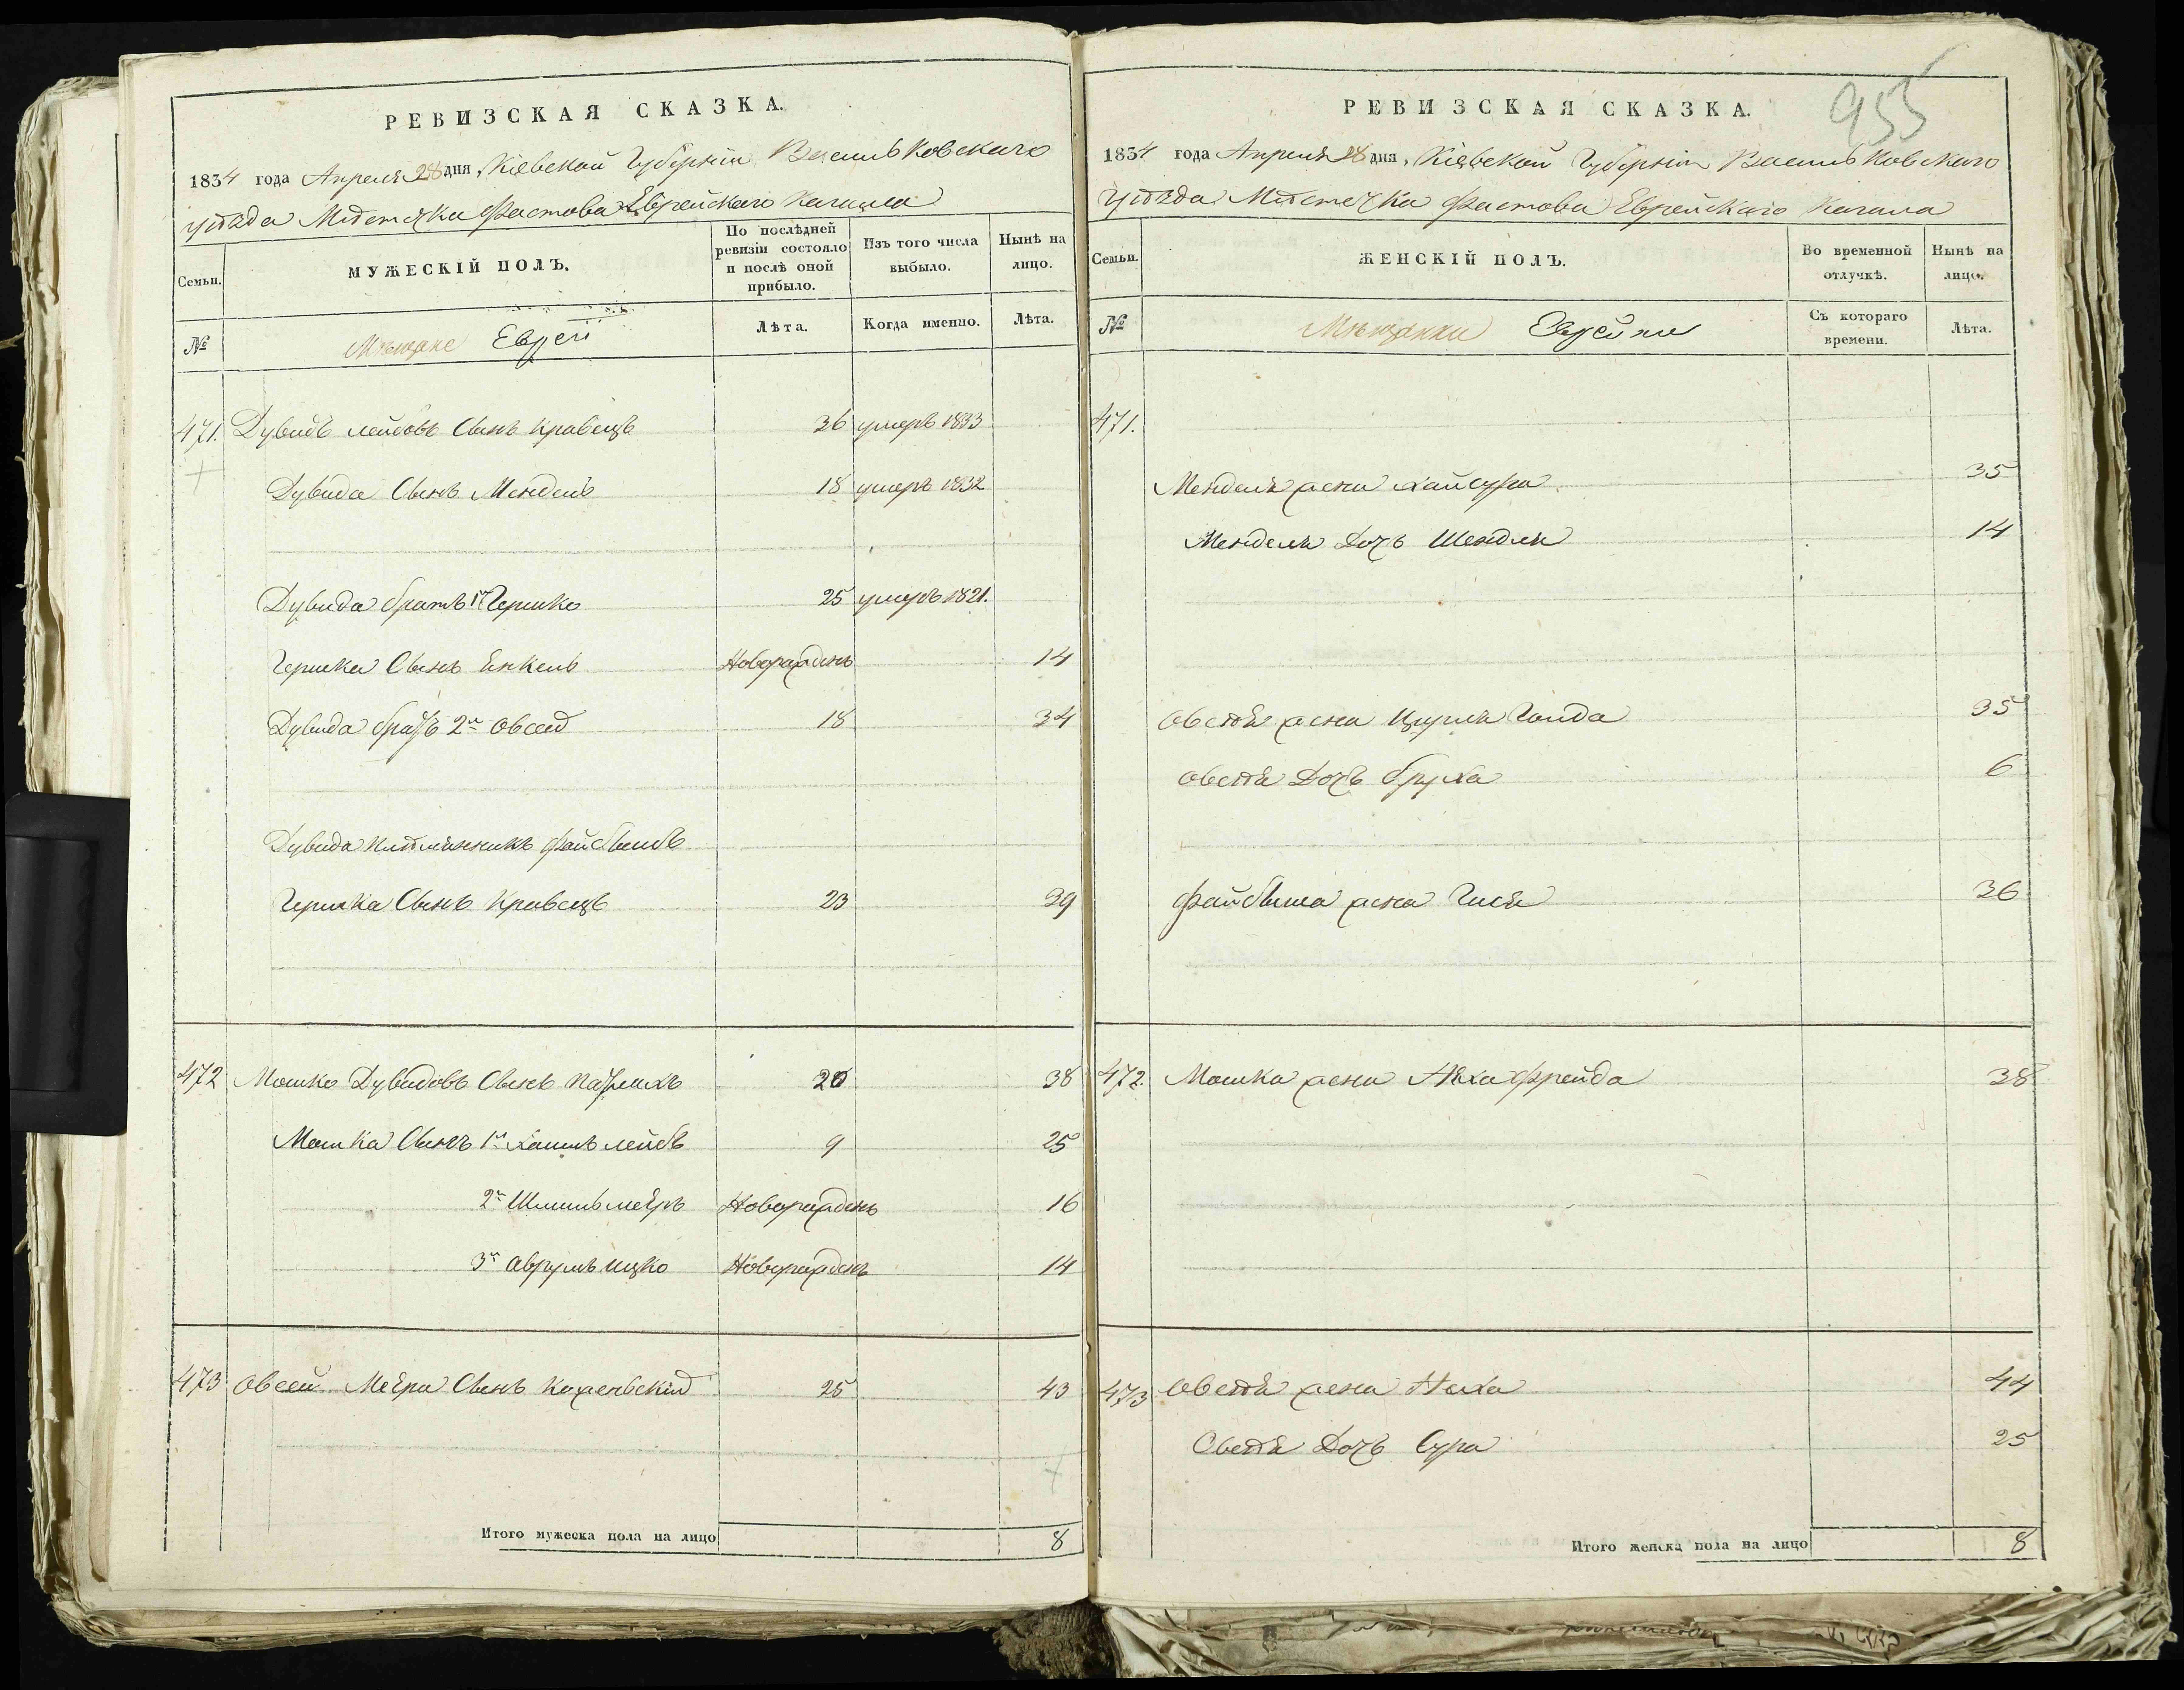 РЕВИЗСКАЯ СКАЗКА.
1834 года Апреля 28 дня, Кіевской Губерніи Васильковскаго
уѣзда Мѣстечка Фастова Еврейскаго Кагала
Семьи.
МУЖЕСКІЙ ПОЛЪ.
По послѣдней ревизіи состояло и послѣ оной прибыло.
Изъ того числа выбыло.
Нынѣ на лицо.
№
Мѣщане Евреи
Лѣта.
Когда именно.
Лѣта.
471. Дувидъ Лейбовъ Сынъ Кравецъ 36 умеръ 1833
Дувида Сынъ Мендель 18 умеръ 1832
Дувида братъ 1й Гершко 25 умеръ 1821.
Гершка Сынъ Енкель Новорожденъ 14
Дувида братъ 2й Овсей 18 34
Дувида племянникъ Файбышъ
Гершка Сынъ Кравецъ 23 39
472 Мошко Дувидовъ Сынъ 38
Мошка Сынъ 1й Хаимъ Лейбъ 9 25
2й Шмиль Мееръ Новорожденъ 16
3й Аврумъ Ицко Новорожденъ 14
473 Овсей Меера Сынъ 25 43
Итого мужеска пола на лицо 8
955
РЕВИЗСКАЯ СКАЗКА.
1834 года Апреля 28 дня, Кіевской Губерніи Васильковскаго
уѣзда Мѣстечка Фастова Еврейскаго Кагала
Семьи.
ЖЕНСКІЙ ПОЛЪ.
Во временной отлучкѣ.
Нынѣ на лицо.
№
Мѣщанки Еврейки
Съ котораго времени.
Лѣта.
471.
Менделя жена Хайсура 35
Менделя Дочь Шендля 14
Овсея жена Голда 35
Овсея Дочь Бруха 6
Файбыша жена Гися 36
472. Мошка жена Фрейда 38
473 Овсея жена Неха 44
Овсея Дочь Сура 25
Итого женска пола на лицо 8